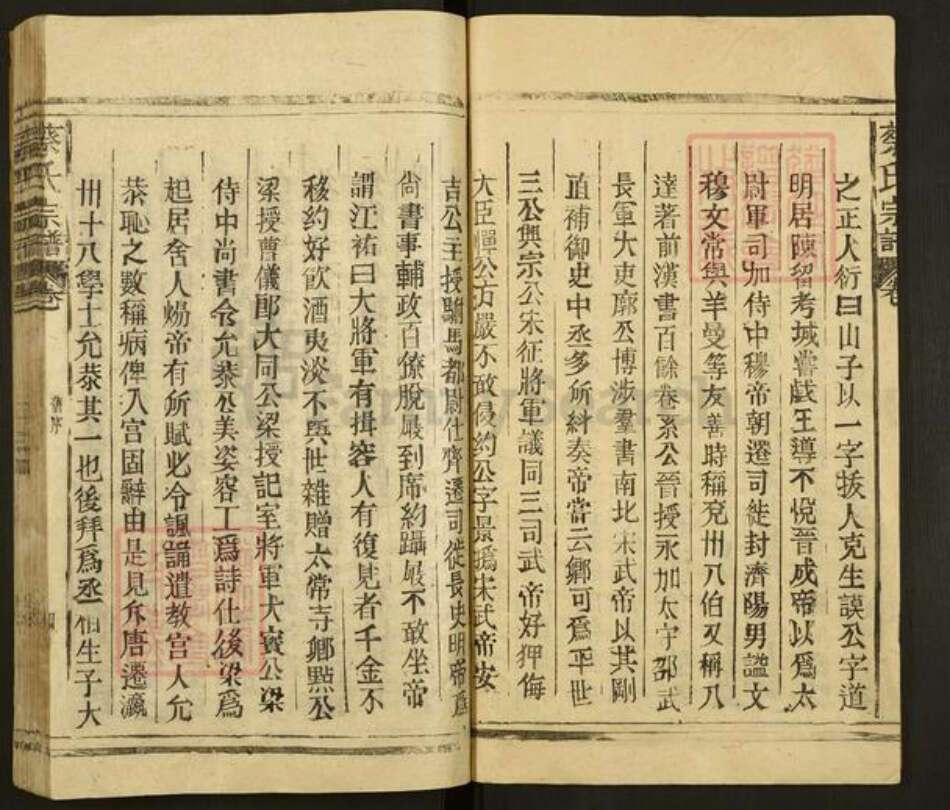 蔡氏宗譜 卷
之正人衍曰山子以一字拔人克生謨公字道
明居陳留考城嘗戲王導不悅晉成帝以爲太
尉軍司加侍中穆帝朝遷司徒封濟陽男謚文
穆文常與羊曼等友善時稱兗卅八伯又稱八
達著前漢書百餘卷系公晉授永加太守邵武
長軍大吏廓公博涉羣書南北宋武帝以其剛
直補御史中丞多所糾奏帝嘗云鄉可爲平世
三公興宗公宋征將軍議同三司武帝好狎侮
大臣憚公方嚴不敢侵約公字景撝宋武帝安
吉公主授駙馬都尉仕齊遷司徒長史明帝爲
尙書事輔政百僚脫屐到席約躡屐不敢坐帝
謂江祐曰大將軍有揖容人有復見者千金不
移約好飲酒夷淡不與世雜贈太常寺卿點公
梁授曹儀郎大同公梁授記室將軍大寶公梁
侍中尚書令允恭公美姿容工爲詩仕後梁爲
起居舍人煬帝有所賦必令諷誦遣教宫人允
恭恥之數稱病俾入宫固辭由是見斥唐遷瀛
卅十八學士允恭其一也後拜爲丞相生子大
蔡氏宗譜 卷
舊序